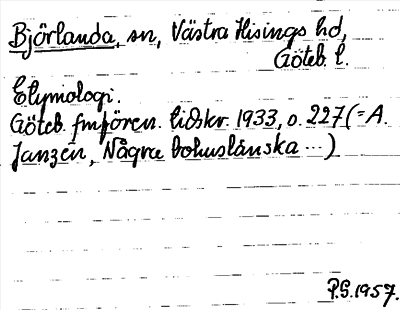 Björlanda, sn, Västra Hisings hd,
Göteb. l.
Etymologi.
Göteb. fmfören. tidskr. 1933, s. 227 (= A.
Janzén, Några bohuslänska ...)
P.S. 1957.